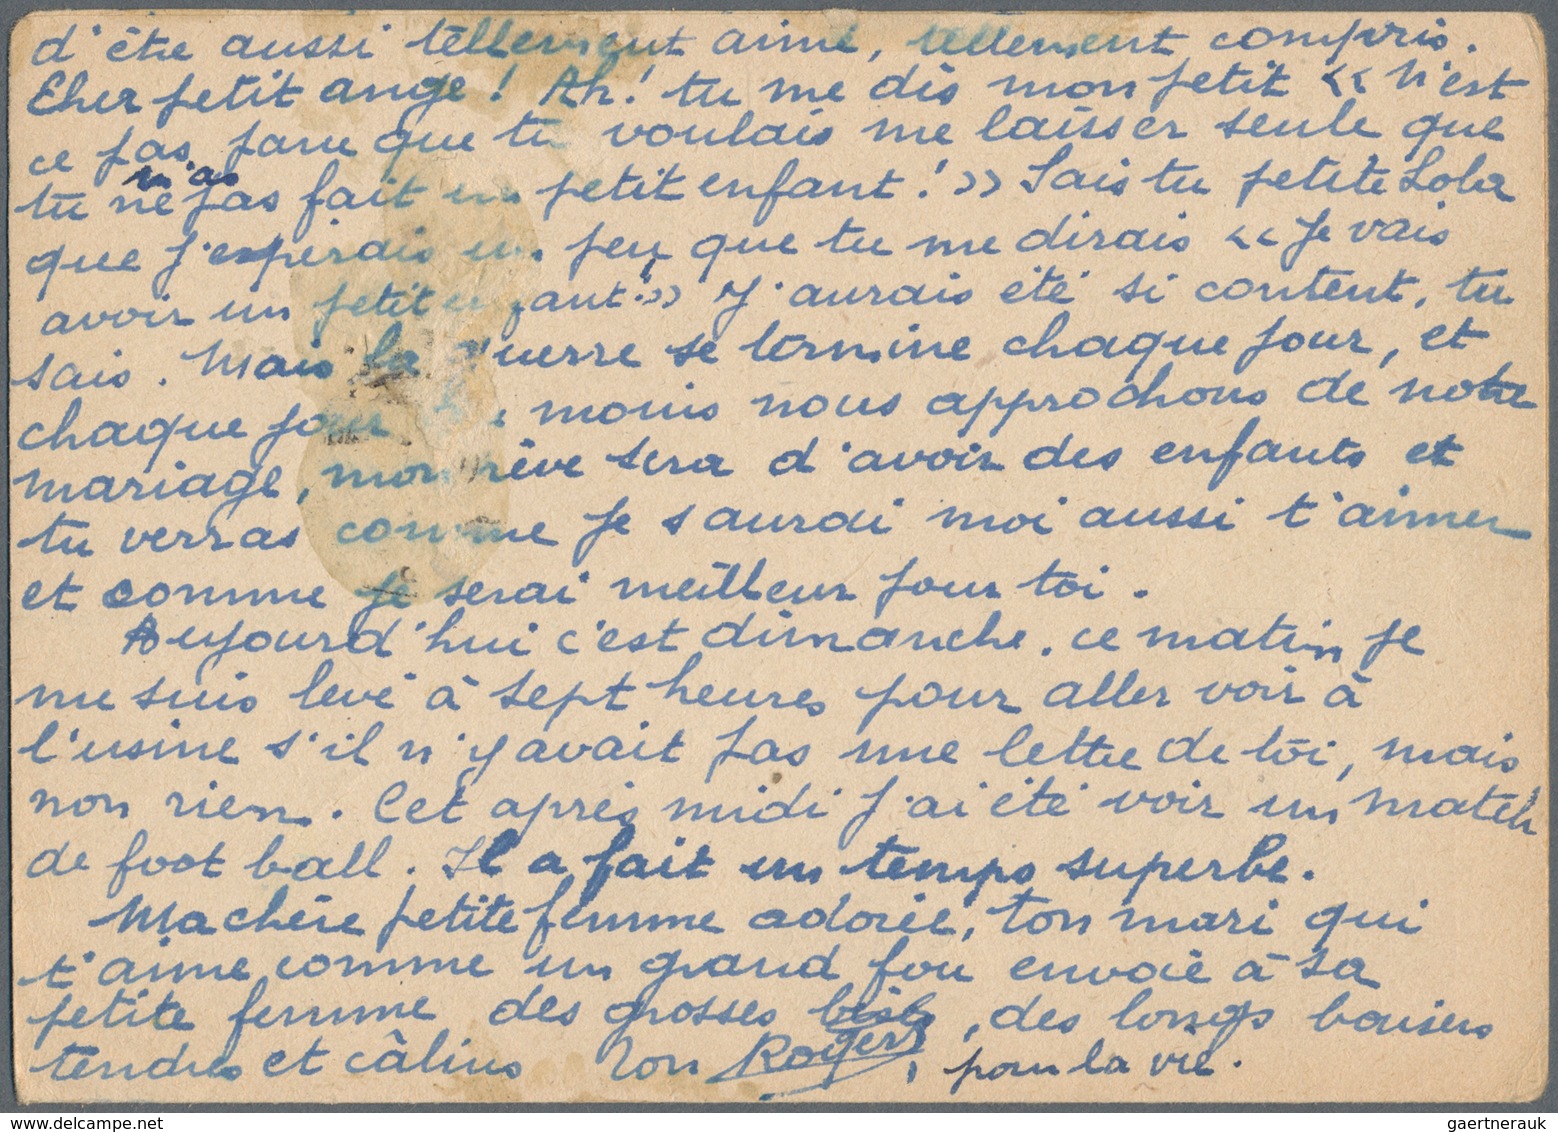 d'être aussi tellement aimé, tellement compris.
Cher petit ange ! Ah ! tu me dis mon petit « N'est
ce pas, parce que tu voulais me laisser seule que
tu ne m'as pas fait un petit enfant ! » Sais tu petite Lola
que j'espérais un peu que tu me dirais « Je vais
avoir un petit enfant ! » J'aurais été si content, tu
sais. Mais la guerre se termine chaque jour, et
chaque jour moins nous approchons de notre
mariage, mon rêve sera d'avoir des enfants et
tu verras comme je saurai moi aussi t'aimer
et comme je serai meilleur pour toi.
Aujourd'hui c'est dimanche. ce matin je
me suis levé à sept heures pour aller voir à
l'usine s'il n'y avait pas une lettre de toi, mais
non rien. Cet après midi j'ai été voir un match
de foot ball. Il a fait un temps superbe.
Ma chère petite femme adorée, ton mari qui
t'aime comme un grand fou envoie à sa
petite femme des grosses bises, des longs baisers
tendres et câlins Ton Roger, pour la vie.
gaertnerauk @ delcampe.net